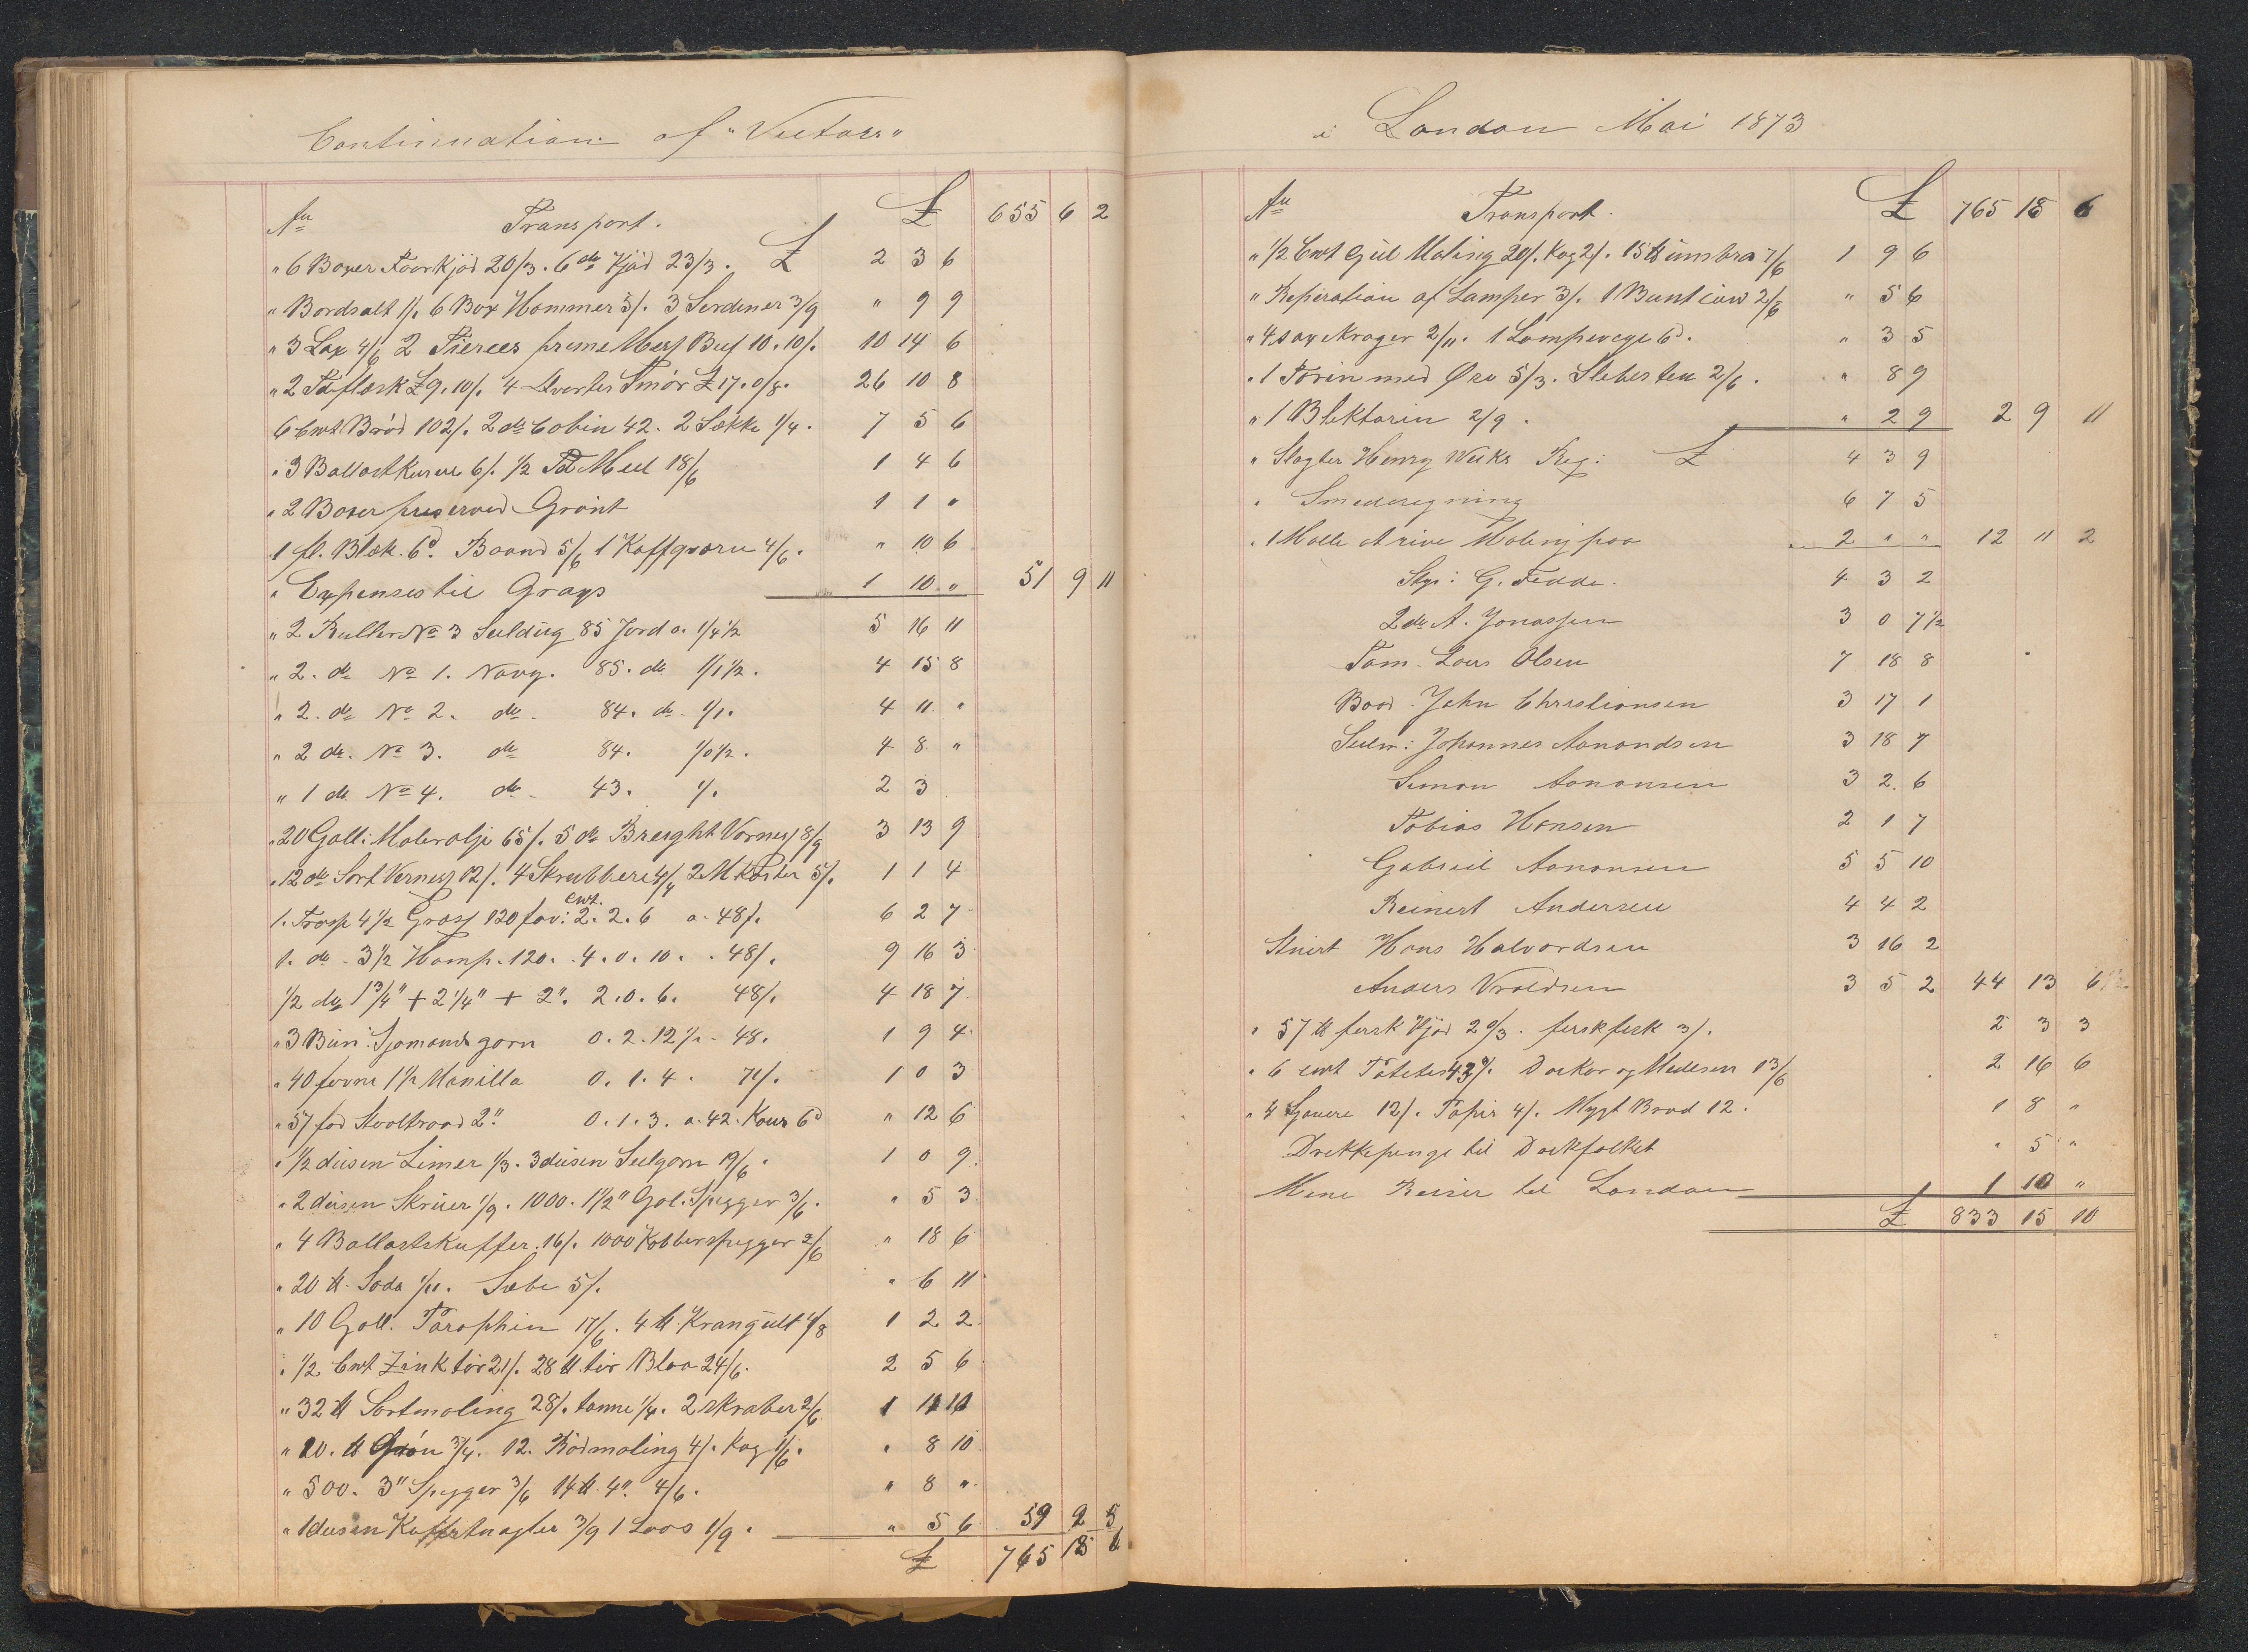 Continuation af "Victoria"
An Transport. £ 655 6 2
" 6 Boxer Faarkjød 20/3. 6 do Kjød 23/3. £ 2 3 6
" Bordsalt 1/. 6 Box Hommer 5/. 3 Serdiner 3/9 " 9 9
" 3 Lax 4/6 2 Tierces prime Mess Beef 10.10/. 10 14 6
" 2 Td flæsk £9.10/. 4 Smør £17.0/8. 26 10 8
6 Cwt Brød 102/. 2 do Cobin 42. 2 Sække 1/4. 7 5 6
" 3 Ballastkurve 6/. 1/2 Td Meel 18/6 1 4 6
" 2 Boxer preserved Grønt 1 1 "
1 fl. Blæk 6d. Baand 5/6 1 Kaffqværn 4/6. " 10 6
" Expenses til Grays 1 10 " 51 9 11
" 2 Ruller No 3 Seeldug 85 Jord a. 1/4 1/2 5 16 11
" 2. do No 1. Navy. 85. do 1/1 1/2. 4 15 8
" 2. do No 2. do. 84. do. 1/1. 4 11 "
" 2 do. No 3. do 84. 1/0 1/2. 4 8 "
" 1 do No 4. do. 43. 1/. 2 3
" 20 Gall: Malerolje 65/. 5 do Breight Verness 8/9 3 13 9
" 12 do Sort Verness 12/. 4 Skrubbere 4/4 2 M Koster 5/. 1 1 4
1. Trosse 4 1/2 Grass 120 fav: cwt. 2. 2. 6 a. 48/. 6 2 7
1. do. 3 1/2 Hamp. 120. 4. 0. 10. . 48/. 9 16 3
1/2 do 1 3/4" + 2 1/4" + 2". 2. 0. 6. 48/. 4 18 7
" 3 Bun: Sjømandsgarn 0. 2. 12 1/2. 48. 1 9 4
" 40 favne 1 1/2 Manilla 0. 1. 4. 71/. 1 0 3
" 57 fod Staaltraad 2" 0. 1. 3. a. 42. Kous 6d " 12 6
" 1/2 dusen Limer 1/3. 3 dusen Seelgarn 19/6. 1 0 9
" 2 dusen Skruer 1/9. 1000. 1 1/2" Gal. Spigger 3/6. " 5 3
" 4 Ballastskuffer. 16/. 1000 Kobberspigger 2/6 " 18 6
" 20 ℔. Soda 1/11. Sæbe 5/. " 6 11
" 10 Gall. Paraphin 17/6. 4 ℔ Krongult 4/8 1 2 2
" 1/2 Cwt Zink tør 21/. 28 ℔ tør Blaa 24/6. 2 5 6
" 32 ℔ Sortmaling 28/. tønne 1/4. 2 skraber 2/6 1 11 10
" 10. ℔ Grøn 3/4. 12. Rødmaling 4/. Kag 1/6. " 8 10
" 500. 3" Spigger 3/6 14 ℔. 4". 4/6. " 8 "
" 1 dusen Koffertnagler 3/9 1 Laas 1/9. " 5 6 59 2 5
£ 765 18 6
i London Mai 1873
An Transport. £ 765 18 6
" 1/2 Cwt Gul Maling 20/. Kag 2/. 15 ℔ umbra 7/6 1 9 6
" Reperation af Lamper 3/. 1 2/6 " 5 6
" 4 Krager 2/11. 1 Lampevege 6d. " 3 5
" 1 Torin med Øse 5/3. Slebesten 2/6. " 8 9
" 1 Blektorin 2/9. " 2 9 2 9 11
" Slagter Henry Weeks Reg: £ 4 3 9
" Smederegning 6 7 5
" 1 Malle at rive Maling paa 2 " " 12 11 2
Styr: G. Fedde. 4 3 2
2de A. Jonassen 3 0 7 1/2
Tøm. Lars Olsen 7 18 8
Baad. John Christiansen 3 17 1
Seelm: Johannes Aanondsen 3 18 7
Simon Aanonsen 3 2. 6
Tobias Hansen 2 1 7
Gabriel Aanonsen 5 5 10
Reinert Andersen 4 4 2
Stuert Hans Halvordsen 3 16 2
Anders Vroldsen 3 5 2 44 13 6 1/2
" 57 ℔ fersk Kjød 2 0/3. ferskfisk 3/. 2 3 3
" 6 cwt Poteter 43/. Doctor og Medesin 13/6 2 16 6
" 4 12/. Papir 4/. Mygt Brød 12. 1 8 "
Drikkepenge til Dockfolket " 5 "
Mine Reiser til London 1 10 "
£ 833 15 10